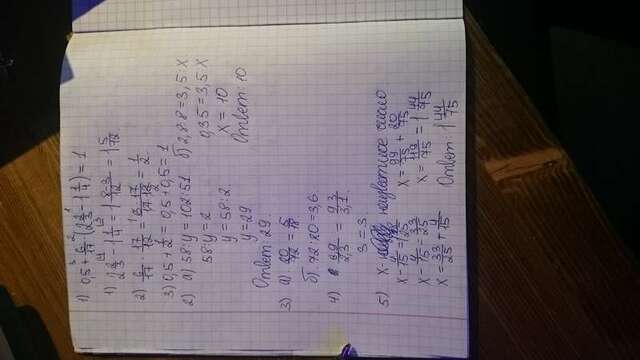 1) 0,5 + 6/17 · (2 2/3 − 1 1/4) = 1
1) 2 2/3 − 1 1/4 = 1 8−3/12 = 1 5/12
2) 6/17 · 17/12 = 6·17/17·12 = 1/2
3) 0,5 + 1/2 = 0,5 + 0,5 = 1
2) а) 58:y = 102:51
58:y = 2
y = 58:2
y = 29
Ответ: 29.
б) 2,8:8 = 3,5:x
0,35 = 3,5:x
x = 10
Ответ: 10
3) а) 20/72 = 5/18
б) 72:20 = 3,6.
4) 6,9/2,3 = 9,3/3,1
3 = 3
5) x - неизвестное число
x − 4/15 = 1 8/25
x − 4/15 = 33/25
x = 33/25 + 4/15
x = 99/75 + 20/75
x = 119/75 = 1 44/75
Ответ: 1 44/75